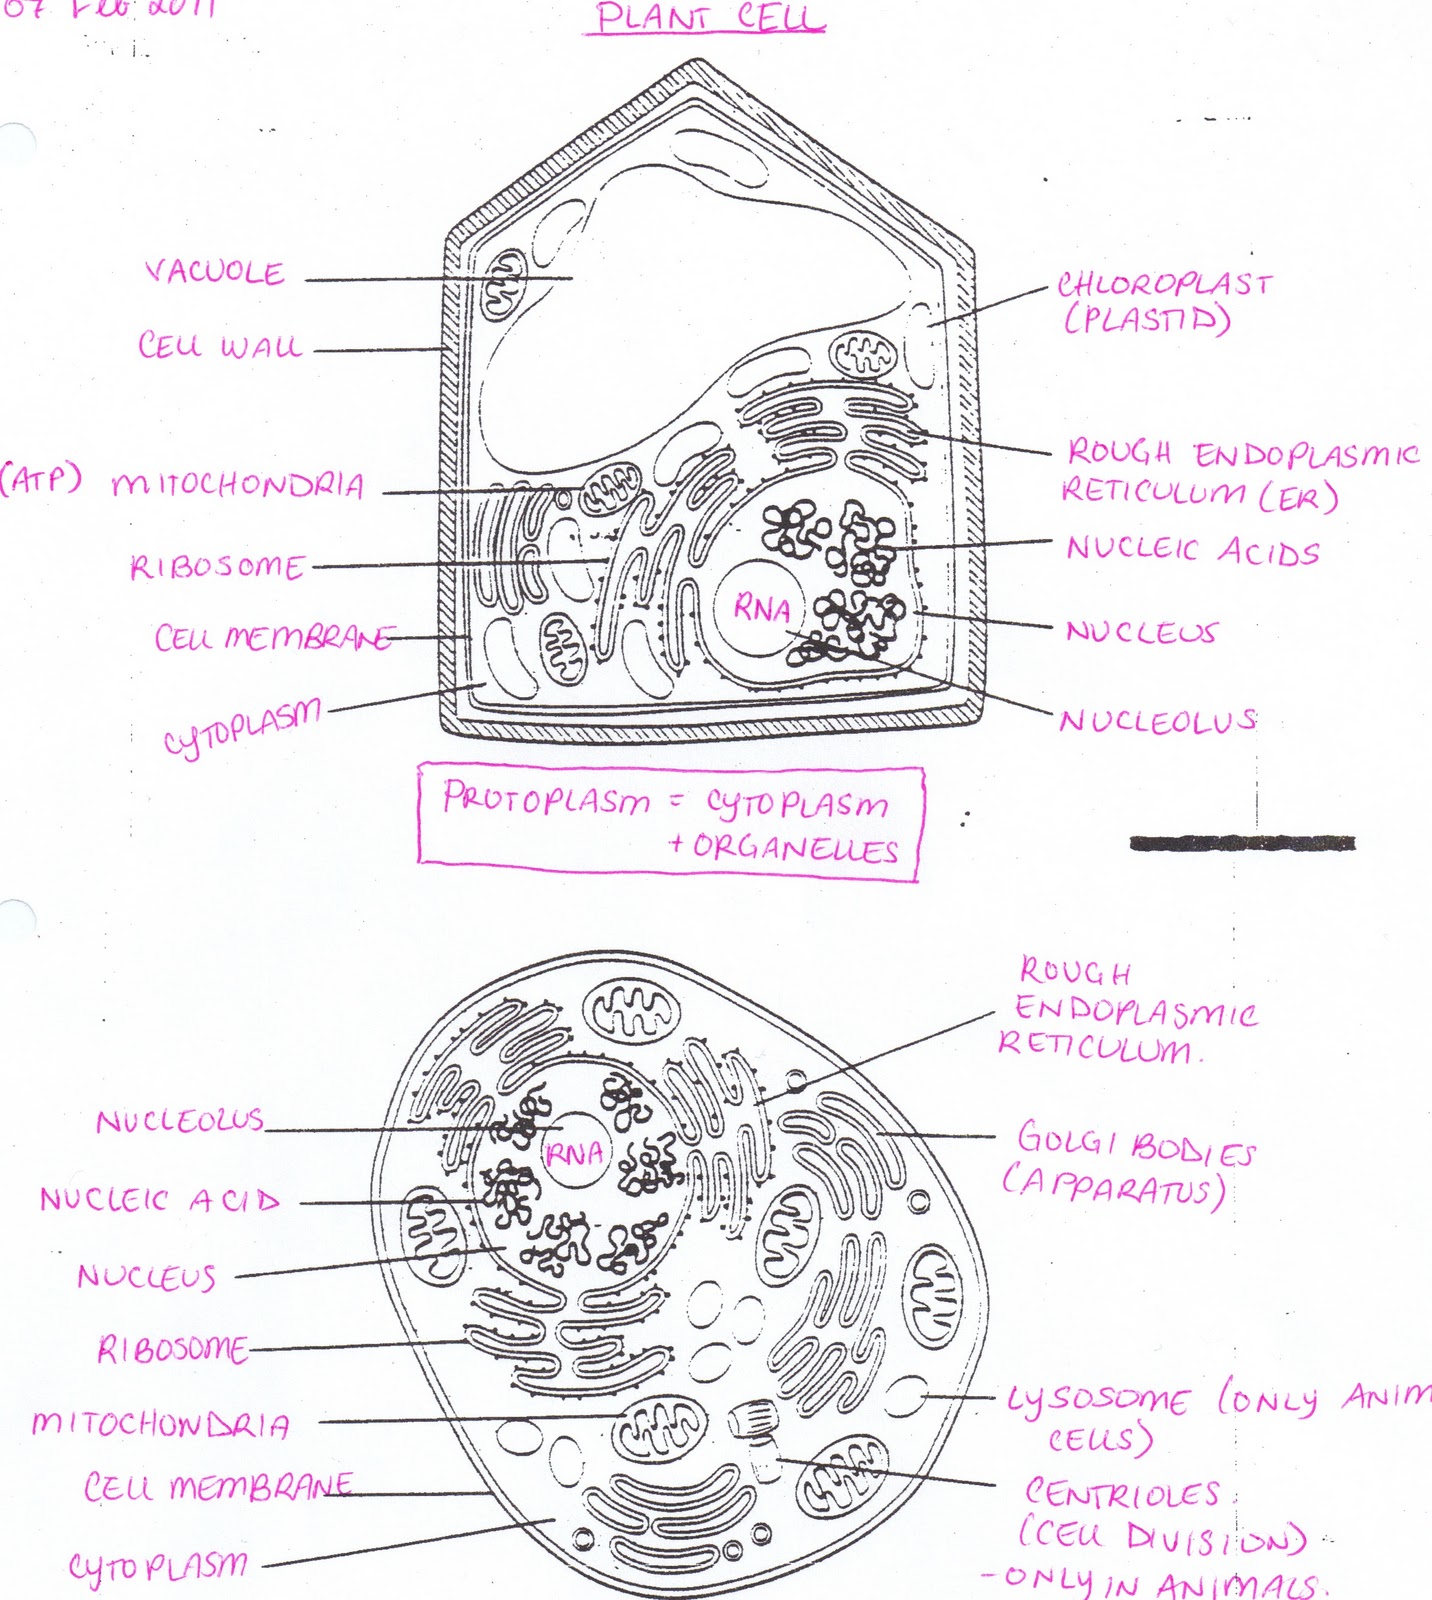 07 Feb 2011
PLANT CELL
VACUOLE
CELL WALL
(ATP) MITOCHONDRIA
RIBOSOME
CELL MEMBRANE
CYTOPLASM
CHLOROPLAST
(PLASTID)
ROUGH ENDOPLASMIC
RETICULUM (ER)
NUCLEIC ACIDS
NUCLEUS
NUCLEOLUS
RNA
PROTOPLASM = CYTOPLASM
+ ORGANELLES
NUCLEOLUS
NUCLEIC ACID
NUCLEUS
RIBOSOME
MITOCHONDRIA
CELL MEMBRANE
CYTOPLASM
RNA
ROUGH
ENDOPLASMIC
RETICULUM.
GOLGI BODIES
(APPARATUS)
LYSOSOME (ONLY ANIM
CELLS)
CENTRIOLES
(CELL DIVISION)
- ONLY IN ANIMALS.